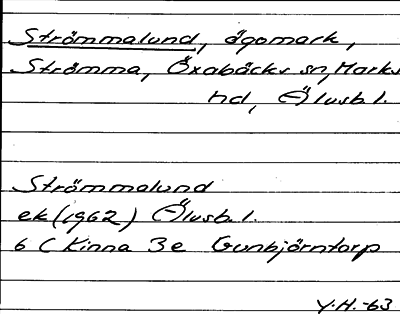 Strömmalund, ägomark,
Strömma, Öxabäcks sn, Marks
hd, Älvsb. l.
Strömmalund
ek (1962) Älvsb. l.
6 C Kinna 3e Gunbjörntorp
Y.H.-63